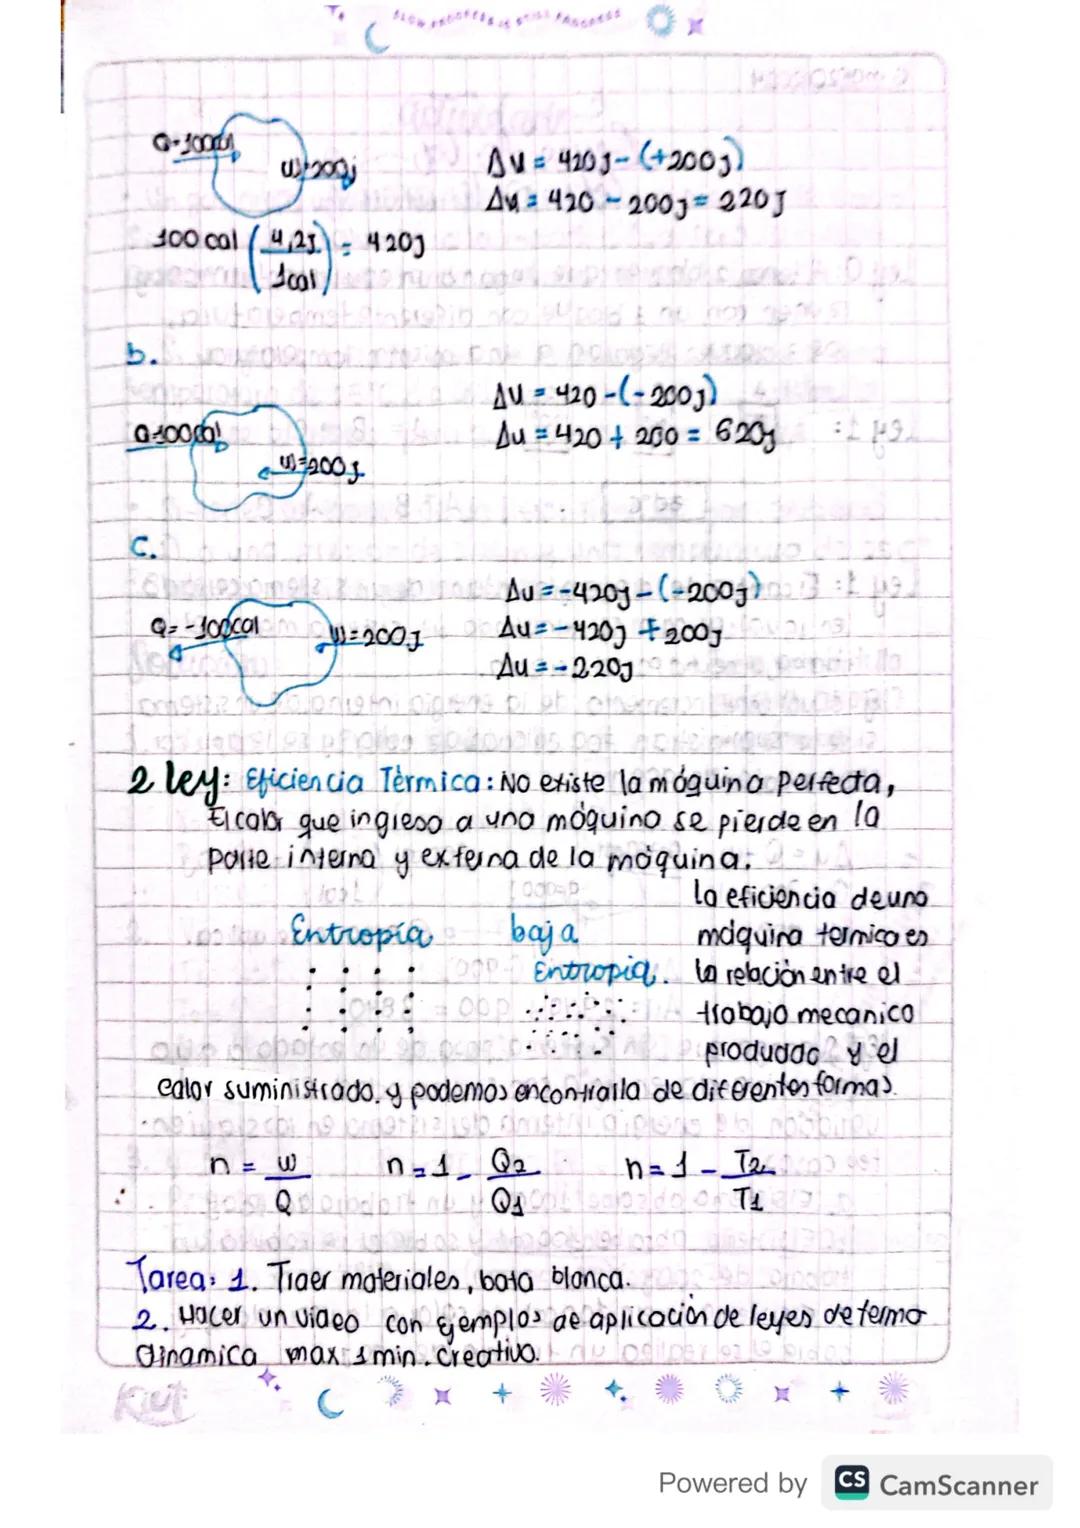 SLOW PROGRESS IS STILL PROGRESS
Q=100cal
W=200j
ΔU = 420J-(+200j)
ΔU = 420 - 200j = 220J
100 cal (4,2J/1cal) = 420j
b.
ΔU = 420-(-200j)
Q=100cal
Δu = 420 + 200 = 620j
W=200J
C.
Δu = -420j-(-200j)
Q= -100cal
W=200J
Δu = -420j + 200j
Δu = -220j
2 ley: Eficiencia Tèrmica: No existe la máquina perfecta,
El calor que ingresa a una máquina se pierde en la
parte interna y externa de la máquina.
La eficiencia de una
Entropía baja máquina termica es
Entropía. la relación entre el
trabajo mecanico
producido y el
calor suministrado. y podemos encontrarla de diferentes formas.
n = W/Q n = 1 - Q2/Q1 n = 1 - T2/T1
Tarea: 1. Traer materiales, bata blanca.
2. Hacer un video con ejemplos de aplicación de leyes de termo
dinamica max 1 min. creativo.
Kiut
Powered by CS CamScanner